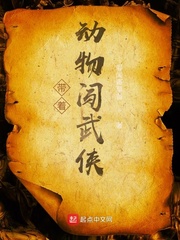 带着
动物闯武侠
起点中文网